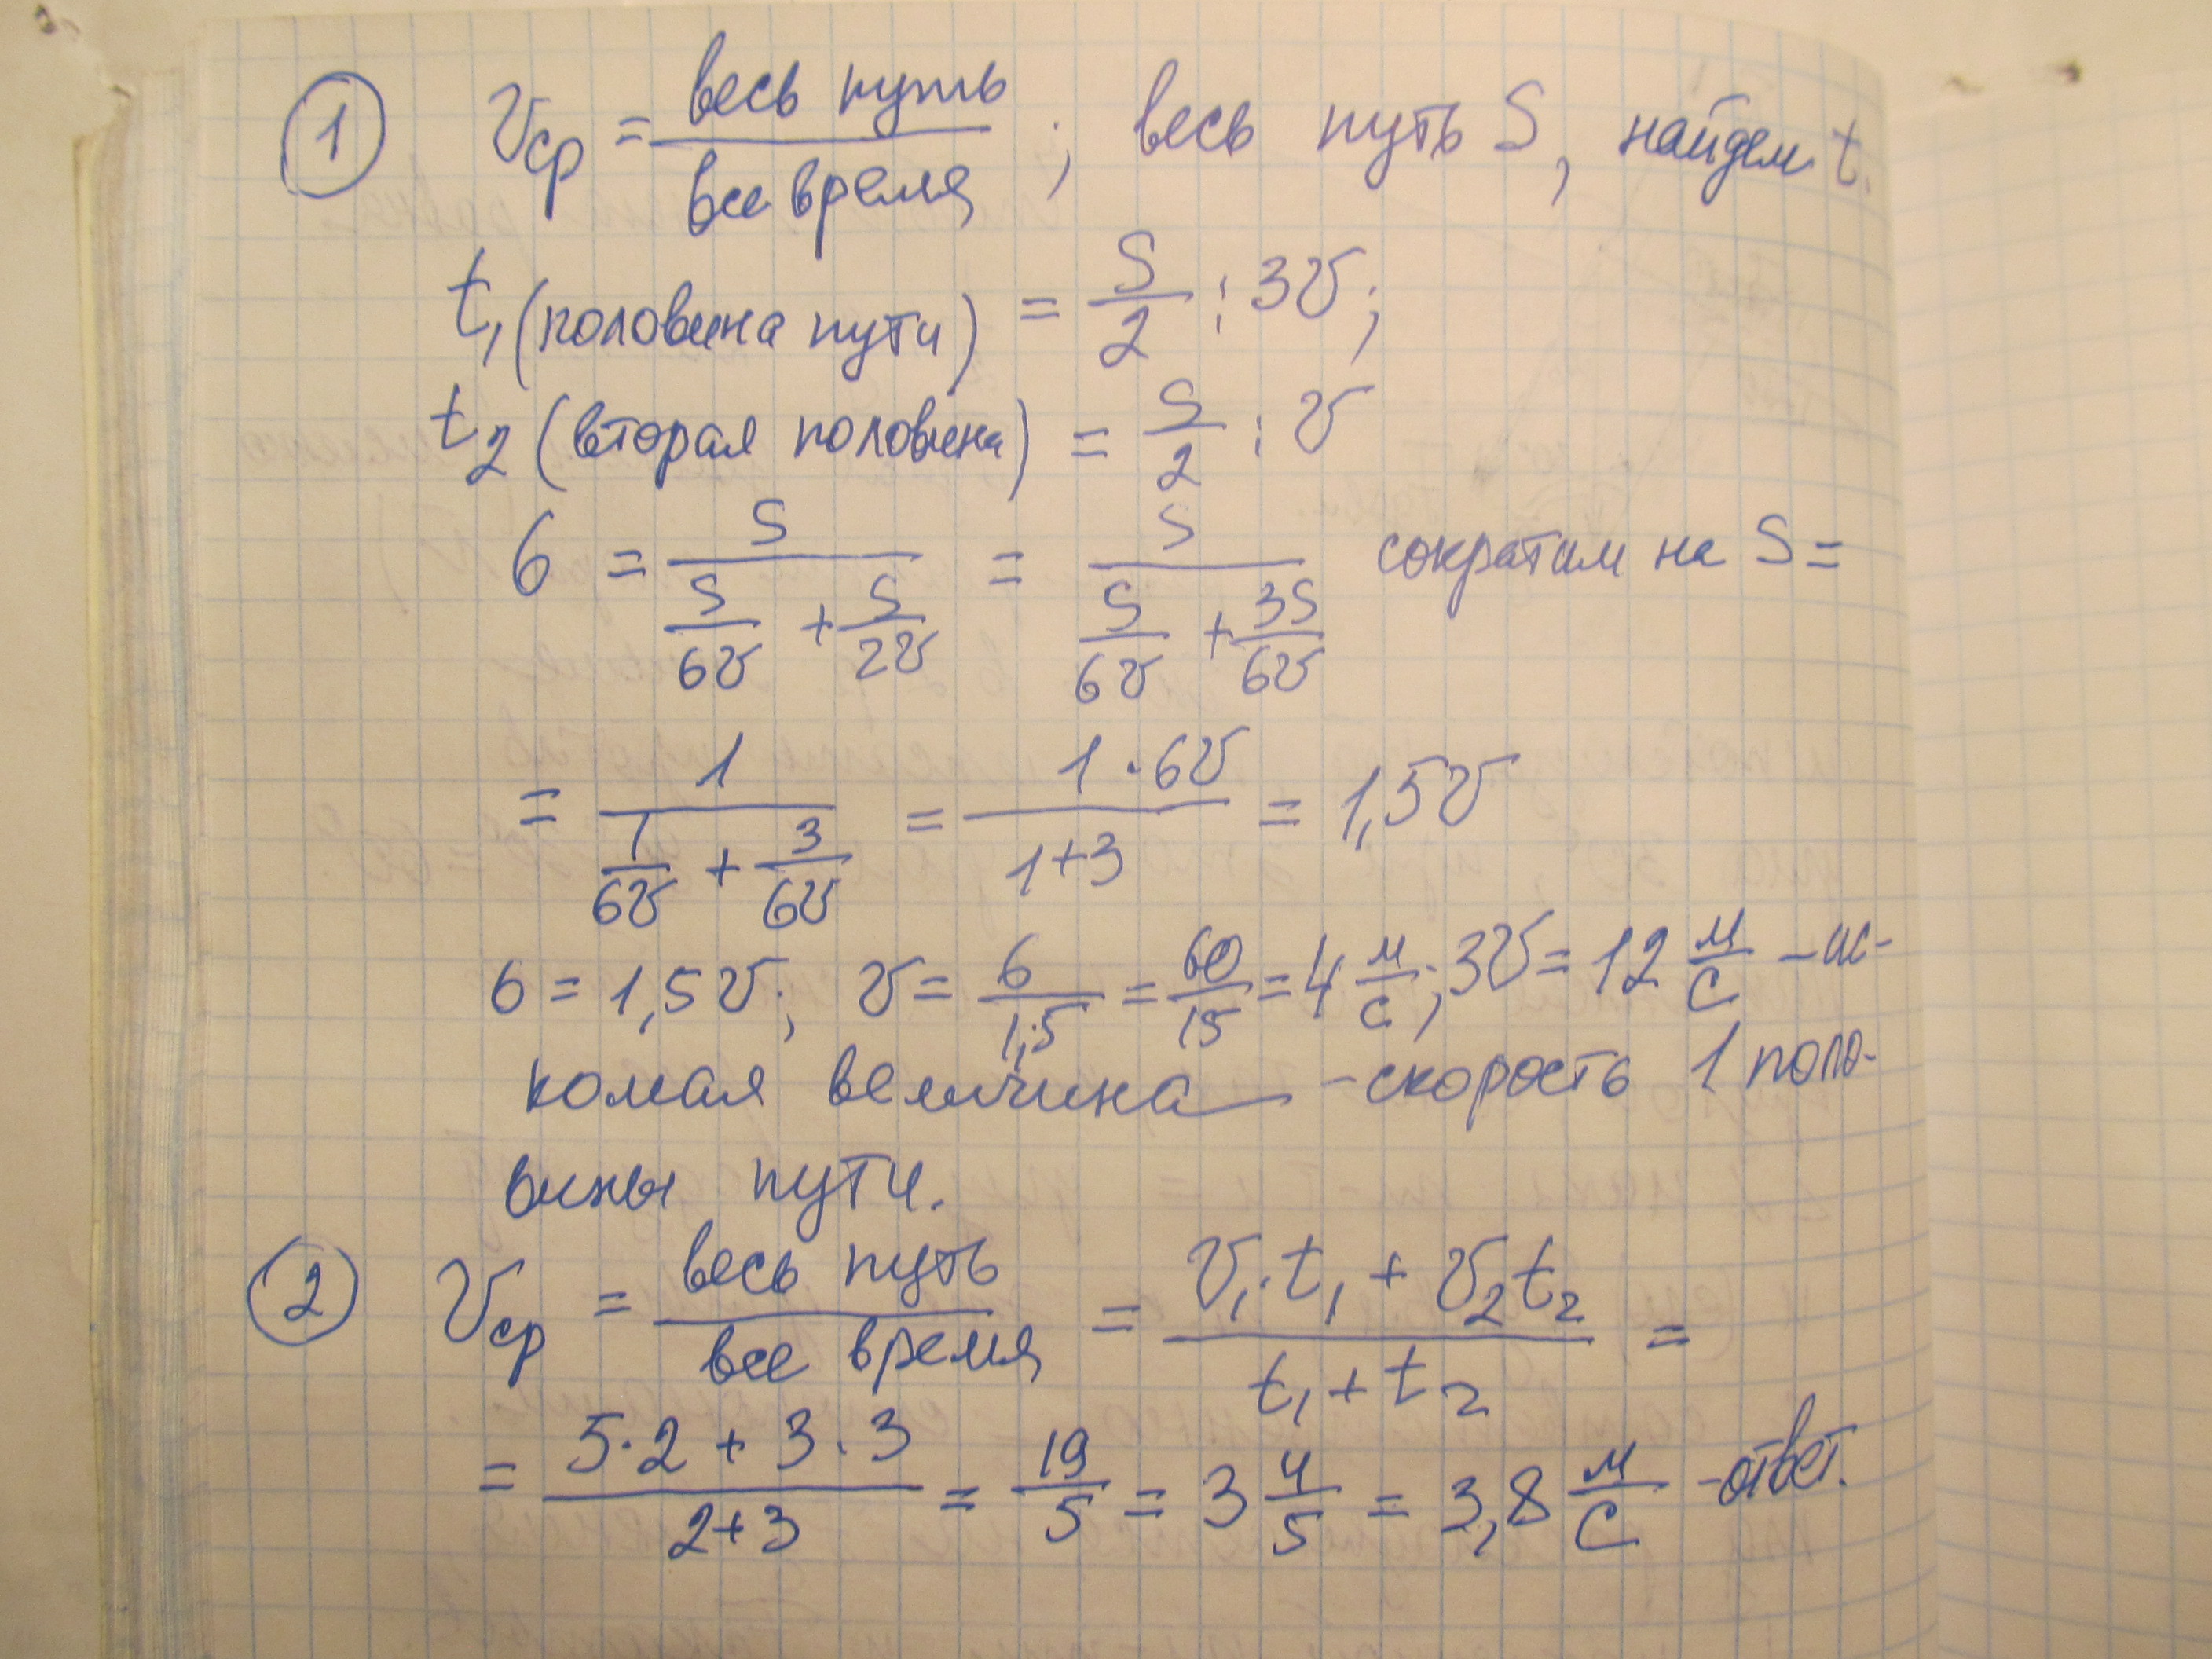 ① Vср = весь путь / все время ; весь путь S, найдем t.
t₁ (половина пути) = S/2 : 3V;
t₂ (вторая половина) = S/2 : V
6 = S / (S/6V + S/2V) = S / (S/6V + 3S/6V) сократим на S =
= 1 / (1/6V + 3/6V) = 1·6V / (1+3) = 1,5V
6 = 1,5V; V = 6/1,5 = 60/15 = 4 м/с; 3V = 12 м/с – ис-
комая величина – скорость 1 поло-
вины пути.
② Vср = весь путь / все время = (V₁·t₁ + V₂t₂) / (t₁ + t₂) =
= (5·2 + 3·3) / (2+3) = 19/5 = 3 4/5 = 3,8 м/с – ответ.